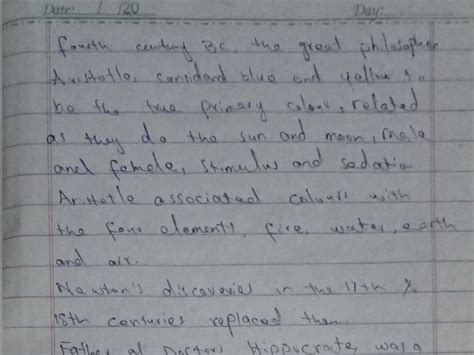 Date: / /20 Day:
fourth century B.C. the great philosopher
Aristotle, considard blue and yellow to
be the true primary colour, related
as they do the sun and moon, male
and female, stimulus and sedation
Aristotle associated colours with
the four elements, fire, water, earth
and air.
Newton's discoveries in the 17th %
18th centuries replaced them
Father of Doctors Hippocrate, was a